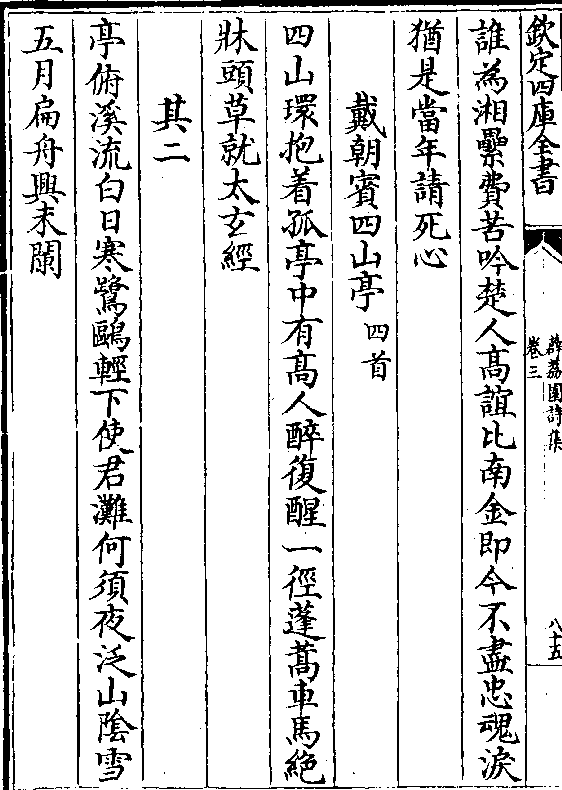 欽定四庫全書
薜荔園詩集
卷三
八十五
誰為湘纍費苦吟楚人髙誼比南金即今不盡忠魂淚
猶是當年請死心
戴朝賓四山亭四首
四山環抱着孤亭中有髙人醉復醒一徑蓬蒿車馬絶
牀頭草就太玄經
其二
亭俯溪流白日寒鷺鷗輕下使君灘何須夜泛山陰雪
五月扁舟興未闌